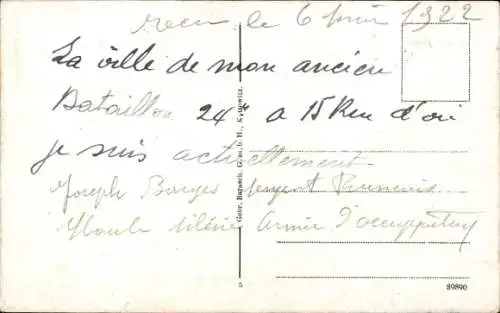 recu le 6 juin 1922
La ville de mon ancien
Bataillon 24e a 15 Km d'où
je suis actuellement
Joseph Borges sergent
Haute Silésie Armée d'occupation
Gebr. Bugasch, G. m. b. H., Kattowitz.
5
89890